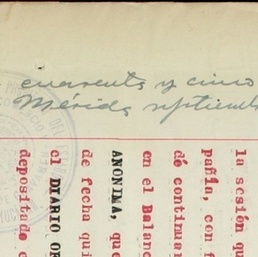 cuarenta y cinco
Mérida septiemb
la sesión qu
pañía, con f
de continuar
en el Balanc
ANONIMA, que
de fecha qui
el DIARIO OF
depositado c